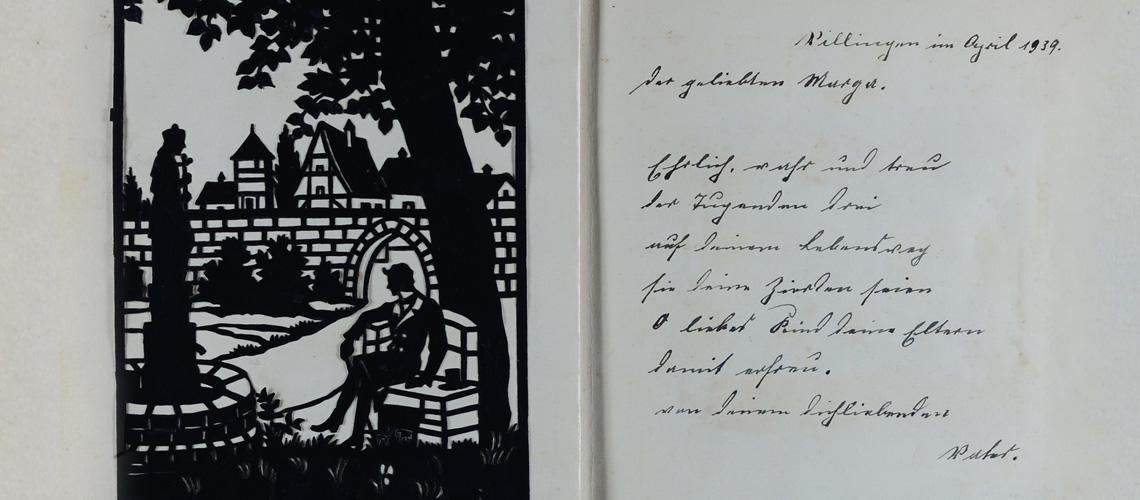 Villingen im April 1939.
Der geliebten Marga.
Ehrlich, wahr und treu
der Tugenden drei
auf deinem Lebensweg
sie deine Zierden seien
O liebes Kind deine Eltern
damit erfreu.
von deinem dichliebenden
Vater.